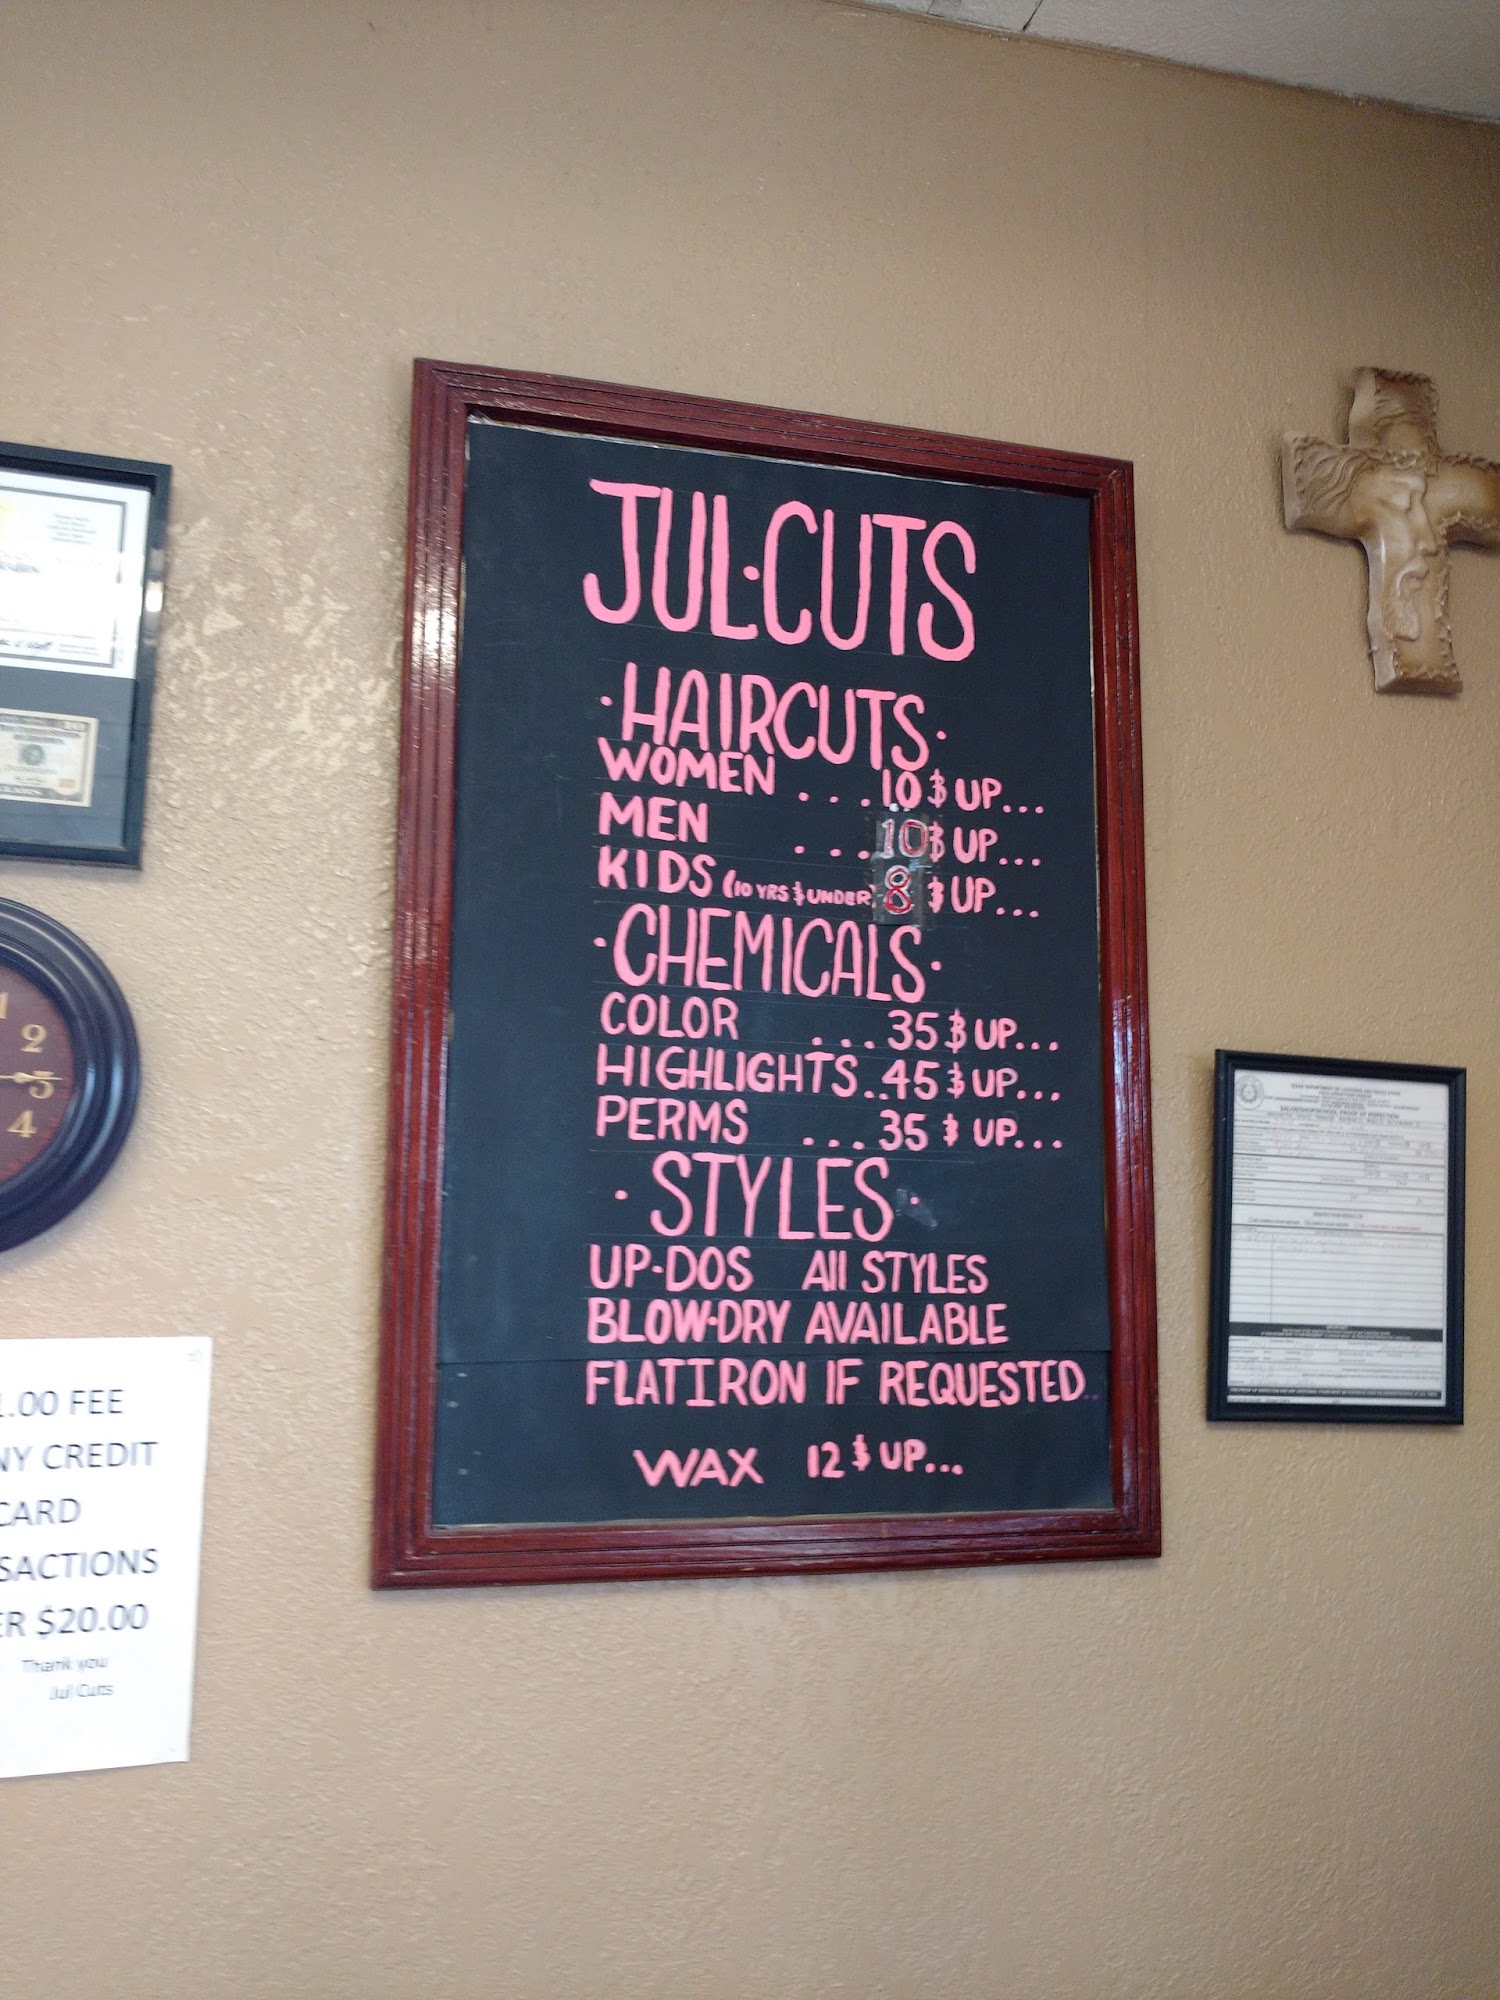 JUL·CUTS
·HAIRCUTS·
WOMEN ...10$ UP...
MEN ...10$ UP...
KIDS (10 YRS & UNDER) 8 $ UP...
·CHEMICALS·
COLOR ...35 $ UP...
HIGHLIGHTS..45 $ UP...
PERMS ...35 $ UP...
·STYLES·
UP-DOS All STYLES
BLOW-DRY AVAILABLE
FLATIRON IF REQUESTED..
WAX 12 $ UP...
1
2
3
4
.00 FEE
NY CREDIT
CARD
SACTIONS
ER $20.00
Thank you
Jul Cuts